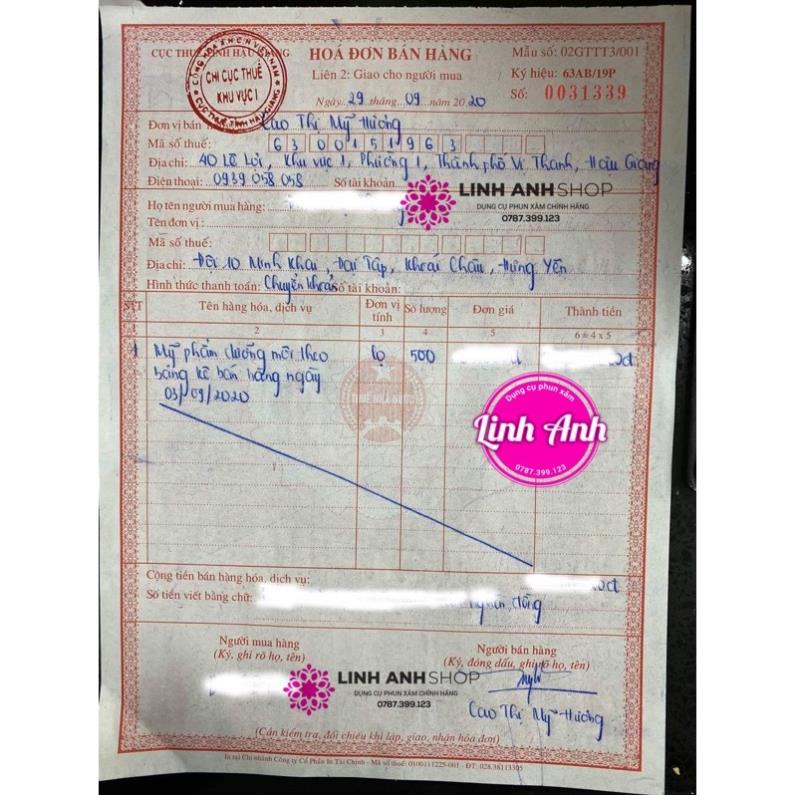 CỤC THUẾ TỈNH HẬU GIANG
HOÁ ĐƠN BÁN HÀNG
Mẫu số: 02GTTT3/001
Liên 2: Giao cho người mua
Ký hiệu: 63AB/19P
Ngày 29 tháng 09 năm 2020
Số: 0031339
CỘNG HÒA X.H.C.N VIỆT NAM
CHI CỤC THUẾ
KHU VỰC I
CỤC THUẾ TỈNH HẬU GIANG
Đơn vị bán Cao Thị Mỹ Hương
Mã số thuế: 6300151963
Địa chỉ: 40 Lê Lợi, Khu vực 1, Phường 1, Thành phố Vị Thanh, Hậu Giang
Điện thoại: 0939 058 058 Số tài khoản
LINH ANH SHOP
DỤNG CỤ PHUN XĂM CHÍNH HÃNG
0787.399.123
Họ tên người mua hàng:
Tên đơn vị:
Mã số thuế:
Địa chỉ: Đội 10 Minh Khai, Đại Tập, Khoái Châu, Hưng Yên
Hình thức thanh toán: Chuyển khoản Số tài khoản:
STT Tên hàng hóa, dịch vụ Đơn vị tính Số lượng Đơn giá Thành tiền
1 2 3 4 5 6=4x5
1 Mỹ phẩm dưỡng môi theo lọ 500 đ
bảng kê bán hàng ngày
03/09/2020
Dụng cụ phun xăm
Linh Anh
0787.399.123
Cộng tiền bán hàng hóa, dịch vụ: 0đ
Số tiền viết bằng chữ: đồng
Người mua hàng
(Ký, ghi rõ họ, tên)
Người bán hàng
(Ký, đóng dấu, ghi rõ họ, tên)
LINH ANH SHOP
DỤNG CỤ PHUN XĂM CHÍNH HÃNG
0787.399.123
Cao Thị Mỹ Hương
(Cần kiểm tra, đối chiếu khi lập, giao, nhận hóa đơn)
In tại Chi nhánh Công ty Cổ Phần In Tài Chính - Mã số thuế: 0100111225-001 - ĐT: 028.38113305